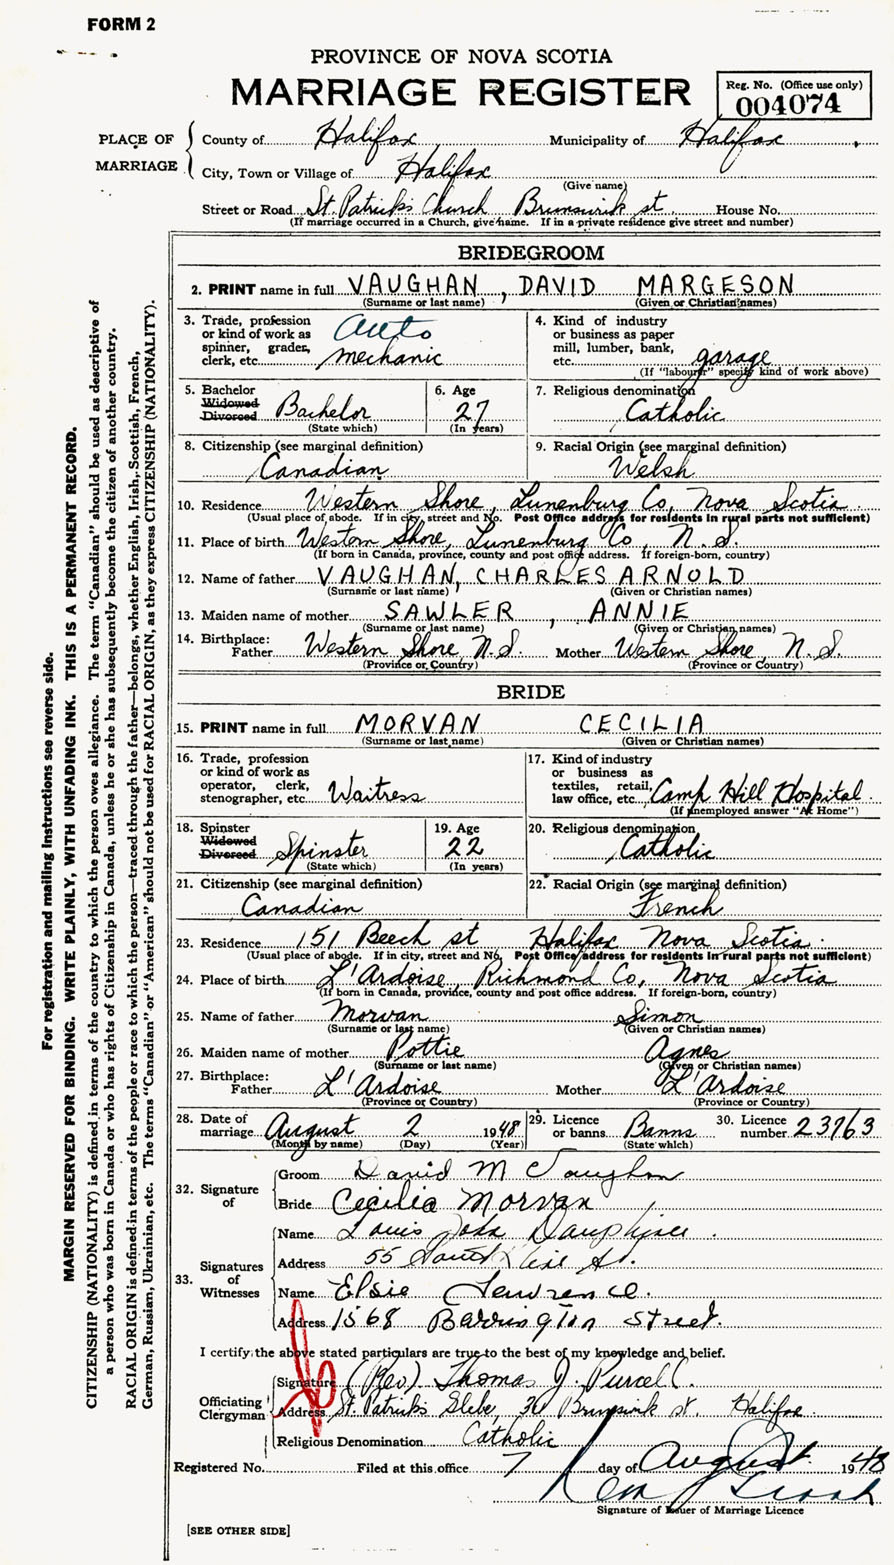 FORM 2
PROVINCE OF NOVA SCOTIA
MARRIAGE REGISTER
Reg. No. (Office use only)
004074
PLACE OF MARRIAGE
County of Halifax Municipality of Halifax
City, Town or Village of Halifax
(Give name)
Street or Road St. Patrick's Church Brunswick st. House No.
(If marriage occurred in a Church, give name. If in a private residence give street and number)
BRIDEGROOM
2. PRINT name in full VAUGHAN, DAVID MARGESON
(Surname or last name) (Given or Christian names)
3. Trade, profession or kind of work as spinner, grader, clerk, etc. Auto mechanic
4. Kind of industry or business as paper mill, lumber, bank, etc. garage
(If "labourer" specify kind of work above)
5. Bachelor Widowed Divorced Bachelor
(State which)
6. Age 27
(In years)
7. Religious denomination Catholic
8. Citizenship (see marginal definition) Canadian
9. Racial Origin (see marginal definition) Welsh
10. Residence Western Shore, Lunenburg Co, Nova Scotia
(Usual place of abode. If in city, street and No. Post Office address for residents in rural parts not sufficient)
11. Place of birth Western Shore, Lunenburg Co, N.S.
(If born in Canada, province, county and post office address. If foreign-born, country)
12. Name of father VAUGHAN, CHARLES ARNOLD
(Surname or last name) (Given or Christian names)
13. Maiden name of mother SAWLER, ANNIE
(Surname or last name) (Given or Christian names)
14. Birthplace: Father Western Shore N.S. Mother Western Shore, N.S.
(Province or Country) (Province or Country)
BRIDE
15. PRINT name in full MORVAN CECILIA
(Surname or last name) (Given or Christian names)
16. Trade, profession or kind of work as operator, clerk, stenographer, etc. Waitress
17. Kind of industry or business as textiles, retail, law office, etc. Camp Hill Hospital
(If unemployed answer "At Home")
18. Spinster Widowed Divorced Spinster
(State which)
19. Age 22
(In years)
20. Religious denomination Catholic
21. Citizenship (see marginal definition) Canadian
22. Racial Origin (see marginal definition) French
23. Residence 151 Beech st Halifax Nova Scotia
(Usual place of abode. If in city, street and No. Post Office address for residents in rural parts not sufficient)
24. Place of birth L'Ardoise, Richmond Co, Nova Scotia
(If born in Canada, province, county and post office address. If foreign-born, country)
25. Name of father Morvan Simon
(Surname or last name) (Given or Christian names)
26. Maiden name of mother Pottie Agnes
(Surname or last name) (Given or Christian names)
27. Birthplace: Father L'Ardoise Mother L'Ardoise
(Province or Country) (Province or Country)
28. Date of marriage August 2 1948
(Month by name) (Day) (Year)
29. Licence or banns Banns
(State which)
30. Licence number 23763
32. Signature of
Groom David M Vaughan
Bride Cecilia Morvan
33. Signatures of Witnesses
Name Louis John
Address 55 St.
Name Elsie Lawrence
Address 1568 Barrington Street
I certify the above stated particulars are true to the best of my knowledge and belief.
Officiating Clergyman
Signature (Rev) Thomas J. Purcell
Address St. Patrick's Glebe, Brunswick st. Halifax
Religious Denomination Catholic
Registered No. Filed at this office 7 day of August 1948
Signature of Issuer of Marriage Licence
[SEE OTHER SIDE]
For registration and mailing instructions see reverse side.
MARGIN RESERVED FOR BINDING. WRITE PLAINLY, WITH UNFADING INK. THIS IS A PERMANENT RECORD.
CITIZENSHIP (NATIONALITY) is defined in terms of the country to which the person owes allegiance. The term "Canadian" should be used as descriptive of
a person who was born in Canada or who has rights of Citizenship in Canada, unless he or she has subsequently become the citizen of another country.
RACIAL ORIGIN is defined in terms of the people or race to which the person—traced through the father—belongs, whether English, Irish, Scottish, French,
German, Russian, Ukrainian, etc. The terms "Canadian" or "American" should not be used for RACIAL ORIGIN, as they express CITIZENSHIP (NATIONALITY).